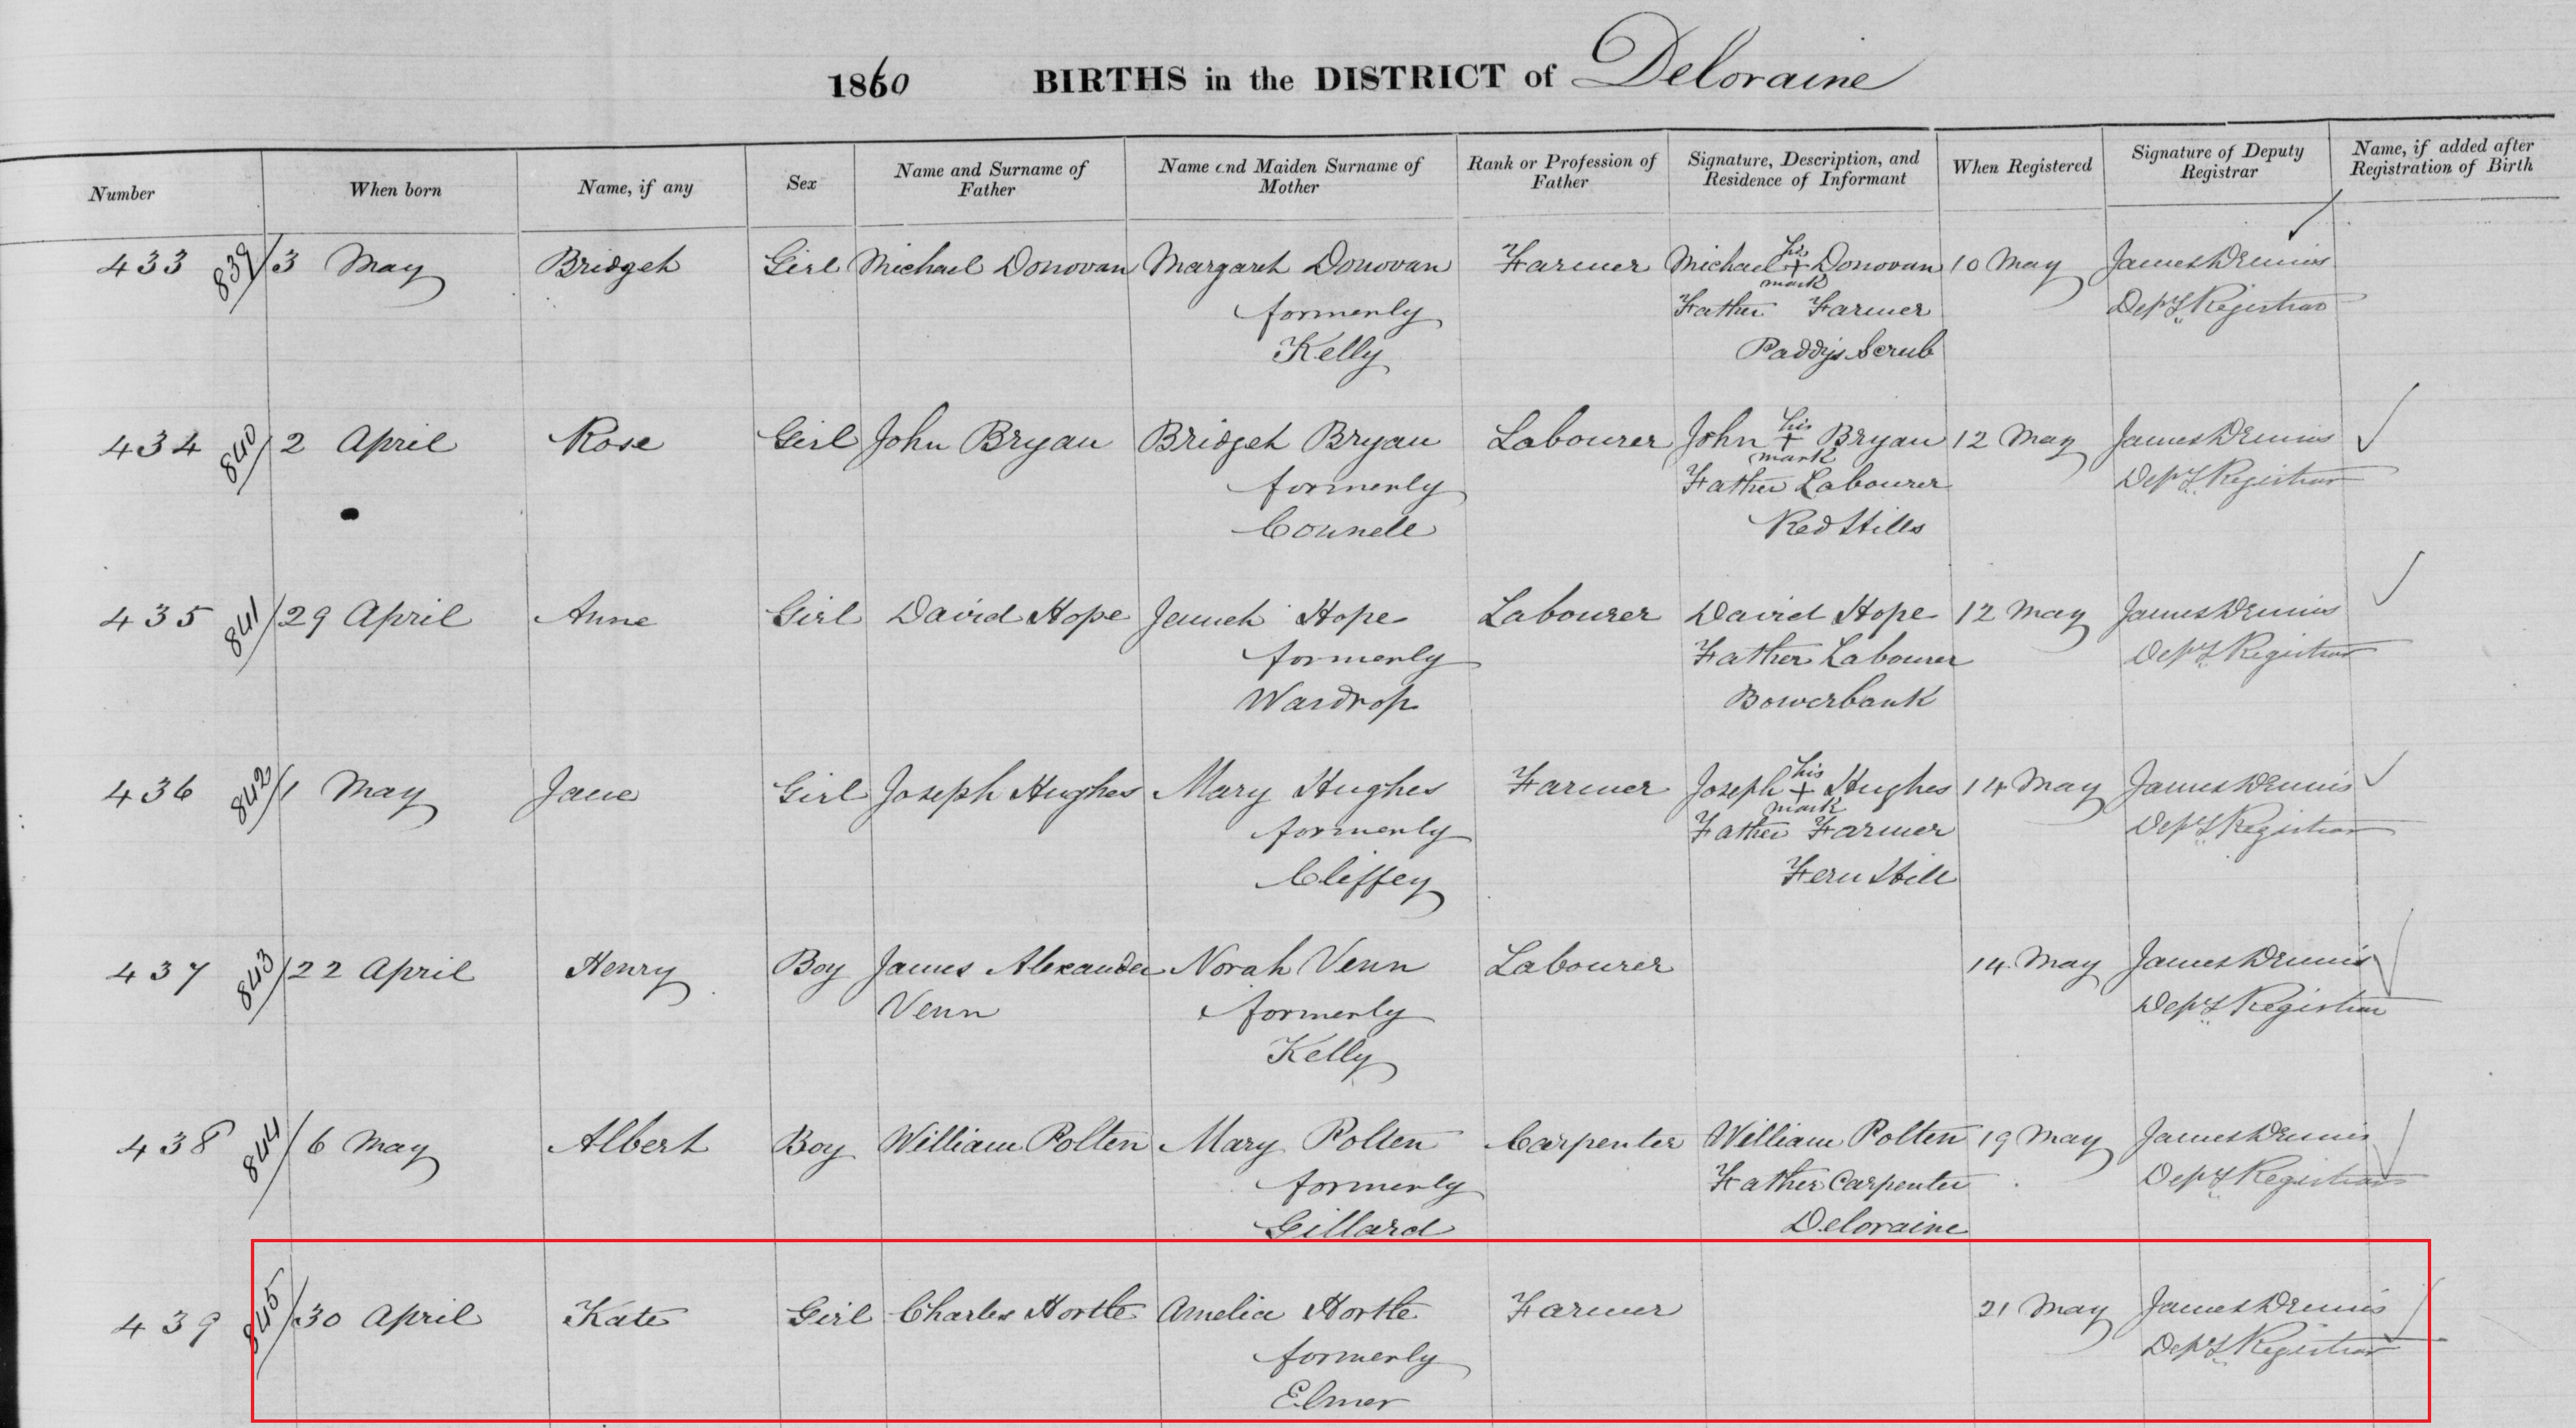 1860 BIRTHS in the DISTRICT of Deloraine
Number When born Name, if any Sex Name and Surname of Father Name and Maiden Surname of Mother Rank or Profession of Father Signature, Description, and Residence of Informant When Registered Signature of Deputy Registrar Name, if added after Registration of Birth
433 839 3 May Bridget Girl Michael Donovan Margaret Donovan Farmer Michael his + mark Donovan 10 May James Dennis
formerly Father Farmer Depy Registrar
Kelly Paddys Scrub
434 840 2 April Rose Girl John Bryan Bridget Bryan Labourer John his + mark Bryan 12 May James Dennis
formerly Father Labourer Depy Registrar
Connell Red Hills
435 841 29 April Anne Girl David Hope Jennet Hope Labourer David Hope 12 May James Dennis
formerly Father Labourer Depy Registrar
Wardrop Bowerbank
436 842 1 May Jane Girl Joseph Hughes Mary Hughes Farmer Joseph his + mark Hughes 14 May James Dennis
formerly Father Farmer Depy Registrar
Cliffey Fern Hill
437 843 22 April Henry Boy James Alexander Norah Venn Labourer 14 May James Dennis
Venn formerly Depy Registrar
Kelly
438 844 6 May Albert Boy William Polten Mary Polten Carpenter William Polten 19 May James Dennis
formerly Father Carpenter Depy Registrar
Gillard Deloraine
439 845 30 April Kate Girl Charles Hortle Amelia Hortle Farmer 21 May James Dennis
formerly Depy Registrar
Elmer